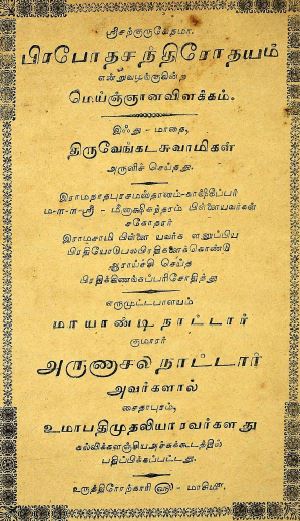 ஸ்ரீசற்குருகேதமா.
பிரபோதசந்திரோதயம்
என்றுவழங்குகின்ற
மெய்ஞ்ஞானவிளக்கம்.
இஃது - மாதை,
திருவேங்கடசுவாமிகள்
அருளிச் செய்தது.
இராமநாதபுரசமஸ்தானம்-காஷகீப்பர்
ம-ா-ா-ஸ்ரீ - மீனாக்ஷிசுந்தரம் பிள்ளையவர்கள்
சகோதரர்
இராமசாமி பிள்ளை யவர்க ளனுப்பிய
பிரதியோடுபலபிரதிகளைக்கொண்டு
ஆராய்ச்சி செய்த
பிரதிக்கிணங்கப்பரிசோதித்து
எருமுட்டபாளயம்
மாயாண்டிநாட்டார்
குமாரர்
அருணாசலநாட்டார்
அவர்களால்
சைதாபுரம்,
உமாபதிமுதலியாரவர்களது
கல்விக்களஞ்சியஅச்சுக்கூடத்தில்
பதிப்பிக்கப்பட்டது.
உருத்திரோற்காரி